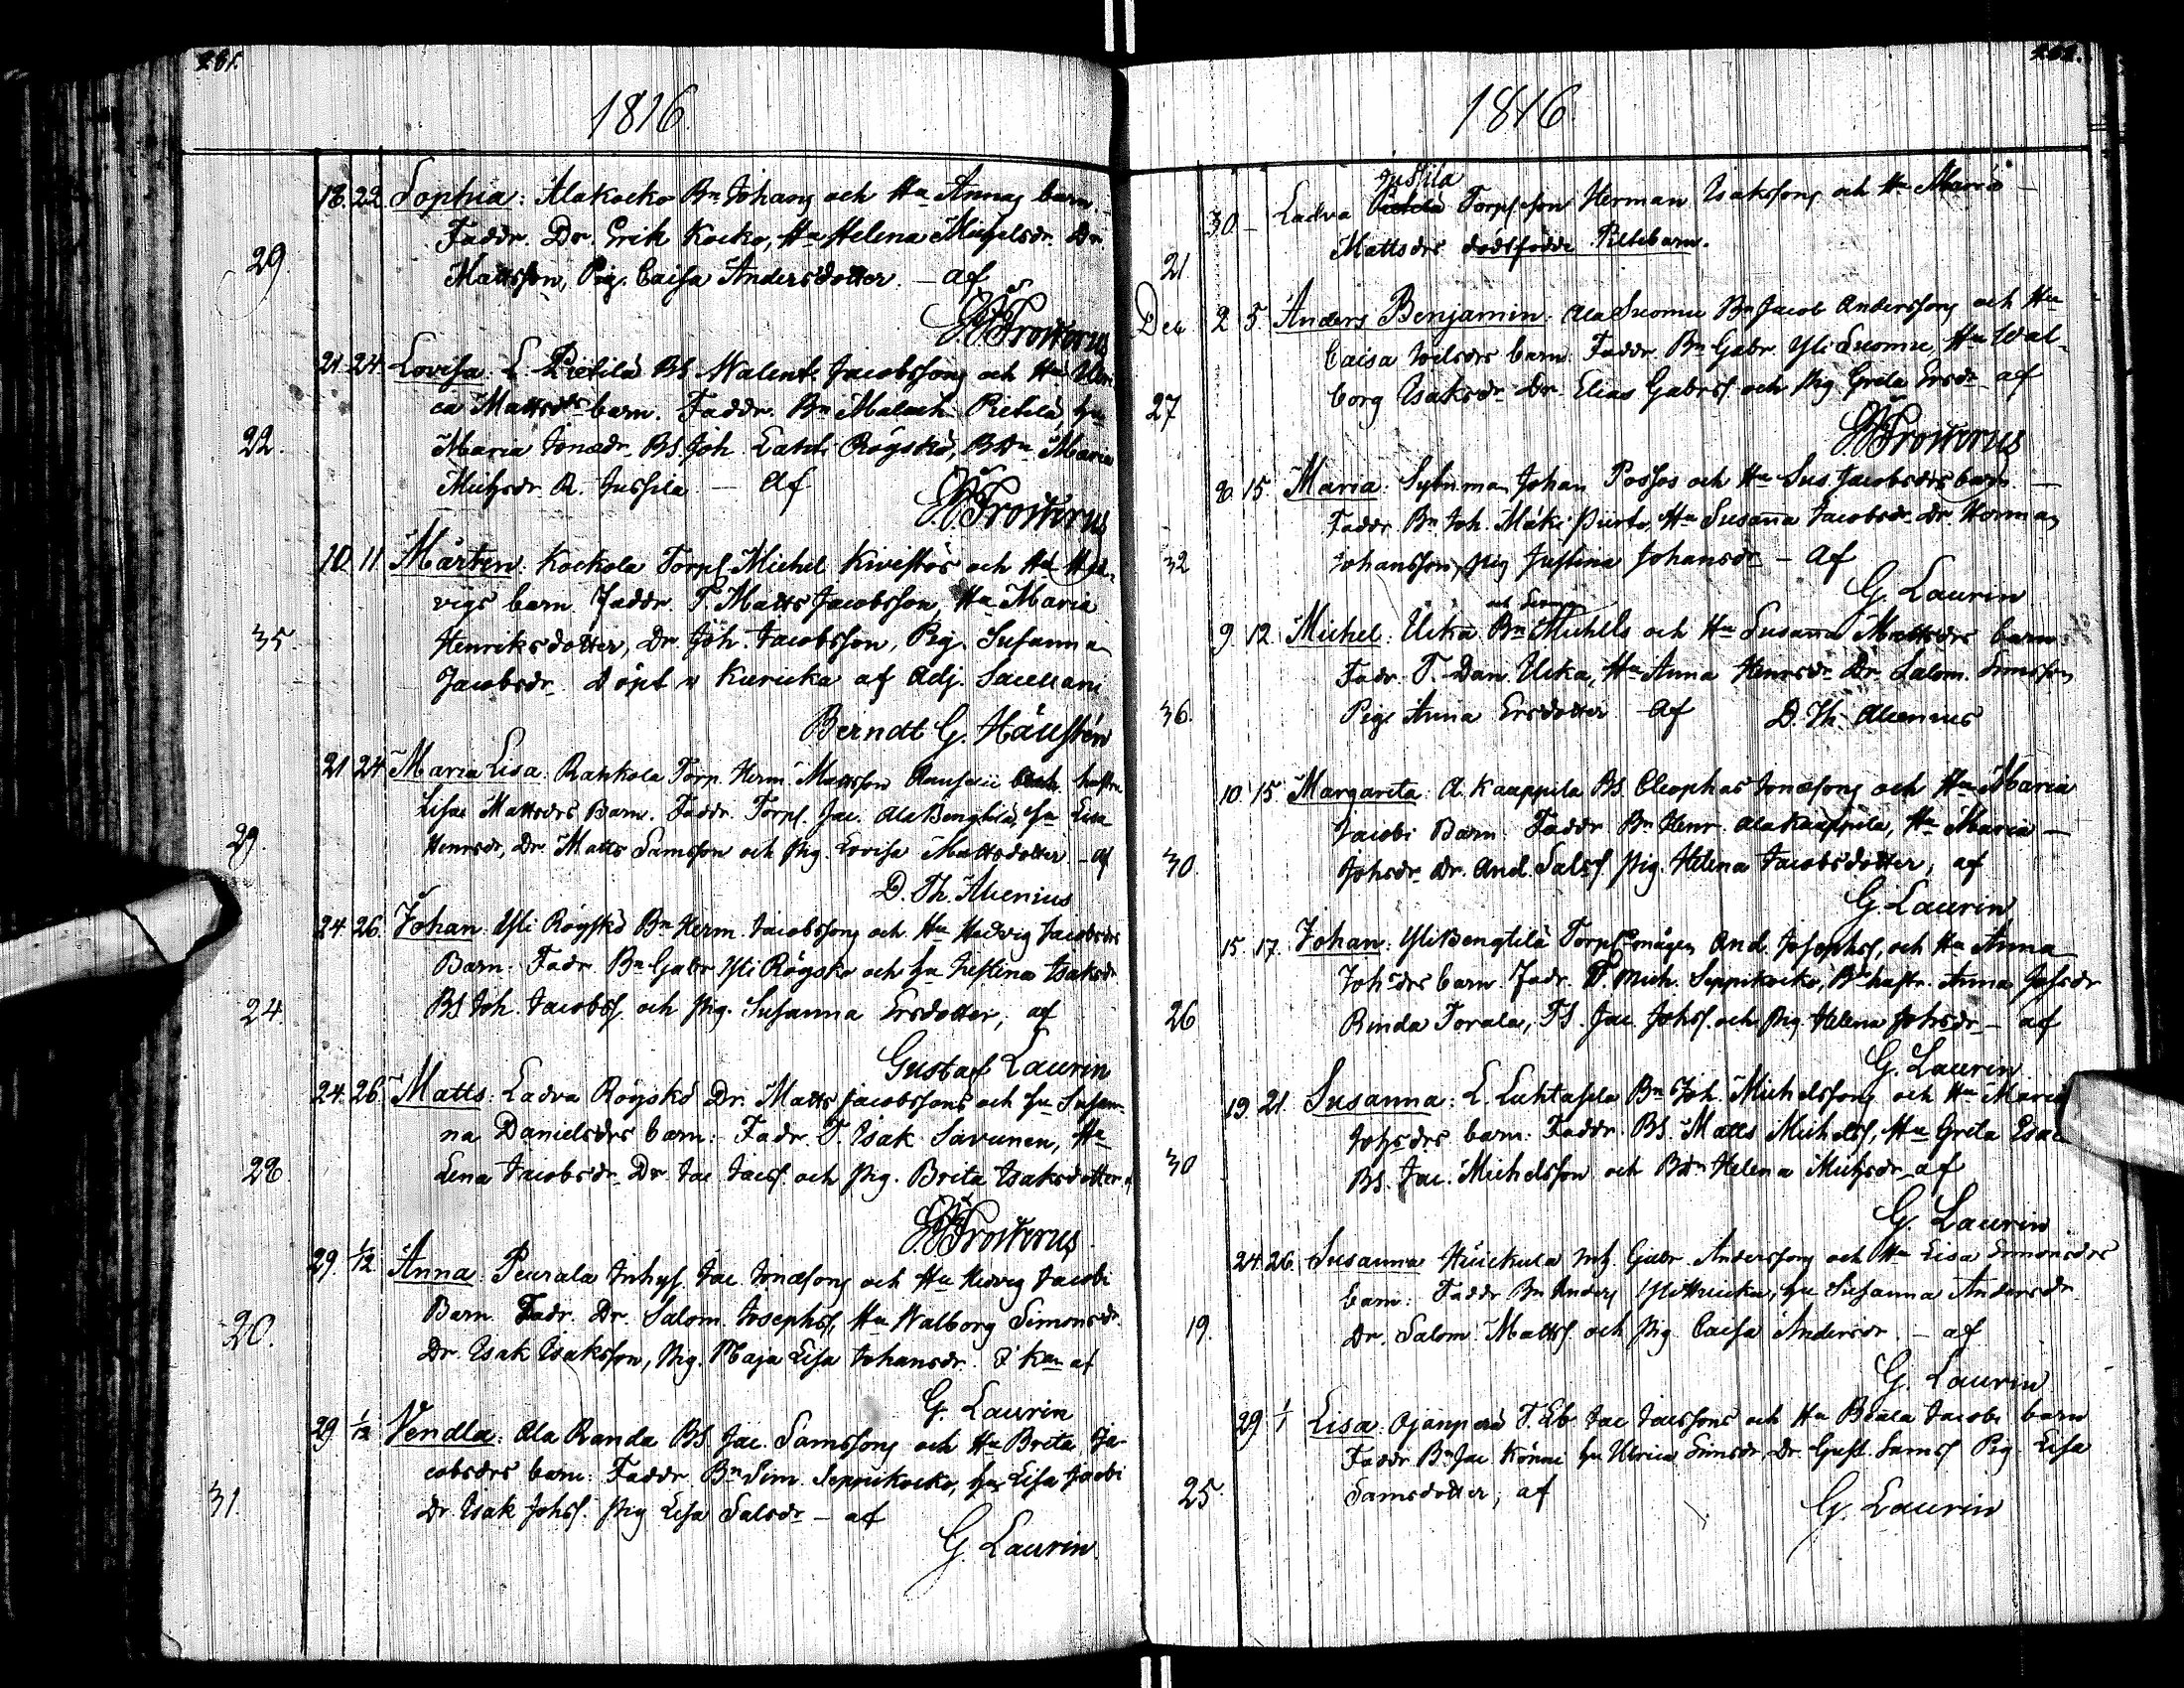 281.
1816.
18. 22. Sophia: Alakocko Bn Johans och Hu Annas barn.
29. Faddr. Dr. Erik Kocko, Hu Helena Michelsdr. Dr.
Mattsson, Pig. Caisa Andersdotter. – af
Frosterus
21. 24. Lovisa. L. Pietilä BS. Malent. Jacobssons och Hu Ulri
ca Mattsdrs barn. Faddr. Bn Malach. Pietilä, Hu
22. Maria Jonædr. BS. Joh. Lahti Röyskö, BDn Maria
Michsdr. R. Jussila – af
Frosterus
10. 11. Mårten: Kockola Torp. Michel Kivistös och Hu Hed-
vigs barn. Faddr. T. Matts Jacobsson, Hu Maria
35. Henriksdotter, Dr. Joh. Jacobsson, Pig. Susanna
Jacobsdr. döpt i Kuricka af Adj. Sacellani
Berndt G. Häusten
21 24 Maria Lisa: Rahkola Torp. Herm. Mattsson och hustru
Lisas Mattsdrs Barn. Faddr. Torp. Jac. Ala Bengtilä, Hu Lisa
29. Henrsdr, Dr. Matts Samsson och Pig. Lovisa Mattsdotter – af
D. Th. Alcenius
24. 26. Johan: Yli Röyskö Bn Herm. Jacobssons och Hu Hedvig Jacobsdrs
Barn: Fadr. Bn Gabr Yli Röyskö och Hu Justina Isaksdr
24. BS Joh. Jacobss. och Pig. Susanna Ersdotter; af
Gustaf Laurin
24. 26. Matts: Ladva Röyskö Dr. Matts Jacobssons och Hu Susan-
na Danielsdrs barn: Fadr. T. Isak Savunen, Hu
28. Lena Jacobsdr. Dr. Jac Jacss. och Pig. Brita Isaksdotter
Frosterus
29. 1/12 Anna: Peurala Inhys. Jac. Jonæsons och Hu Hedvig Jacobi
Barn. Fadr. Dr. Salom. Josephss, Hu Walborg Simonsdr.
20. Dr. Isak Isaksson, Pig. Maja Lisa Johansdr. af
G. Laurin
29 1/12 Vendla: Ala Randa BS. Jac. Samssons och Hu Brita Ja-
cobsdrs barn: Faddr. Bn Sim. Seppikocko, Hu Lisa Jacobi
31. Dr. Isak Johss. Pig Lisa Salsdr – af
G. Laurin.
282.
1816.
Jussila
30 – Ladva Torpsson Herman Isakssons och Hu Maria –
Mattsdrs dödsfödde Piltebarn.
21
Dec 2 5. Anders Benjamin. Ala Luoma Bn Jacob Anderssons och Hu
Caisa barn. Faddr. Bn Gabr. Yli Luoma, Hu Wal-
27 borg Isaksdr. Dr. Elias Gabrss. och Pig. Greta Ersdr – af
Frosterus
8. 15 Maria: Sytnma Johan Possos och Hu Sus. Jacobsdrs barn. –
Faddr. Bn Joh. Mäki Purto, Hu Susana Jacobsdr. Dr. Herman
32 Johansson, Pig Justina Johansdr – af
G. Laurin
9. 12. Michel: Ucka Bn Michels och Hu Susana Mattsdrs barn
Fadr. T. Dan. Ucka, Hu Anna Henrsdr. Dr. Salom. Simsson
36. Pige Anna Ersdotter af D. Th. Alcenius
10. 15. Margareta: A. Kaappila BS. Cleophas Jonæsons och Hu Maria
Jacobi Barn: Faddr. Bn Henr. Ala Kaappila, Hu Maria –
30. Johsdr. Dr. And. Salss. Pig. Helena Jacobsdotter; af
G. Laurin
15. 17. Johan: Yli Bengtilä And. Josephss. och Hu Anna
Johsdrs barn. Fadr. T. Mich. Seppikocko, Bhustr. Anna Johsdr
26 Rinda Torala, TS. Jac. Johss. och Pig. Helena Johsdr – af
G. Laurin
19. 21. Susanna: L. Luhtasela Bn Joh. Michelssons och Hu Maria
Johsdrs barn: Faddr. BS. Matts Michelss, Hu Greta
30 BS. Jac. Michelsson och BDn Helena Michsdr – af
G. Laurin
24. 26. Susanna Gabr. Anderssons och Hu Lisa Simonsdrs
barn: Faddr Bn Anders, Hu Susanna Andersdr
19. Dr. Salom. Mattss. och Pig. Caisa Andersdr. – af
G. Laurin
29 1/1 Lisa: Ojanperä T. Eb. Jac Jacssons och Hu Beata Jacobi barn
Faddr. Bn Jac Könni Hu Ulrica Simsdr, Dr. Gust. Samss Pig. Lisa
25. Samsdotter; af
G. Laurin